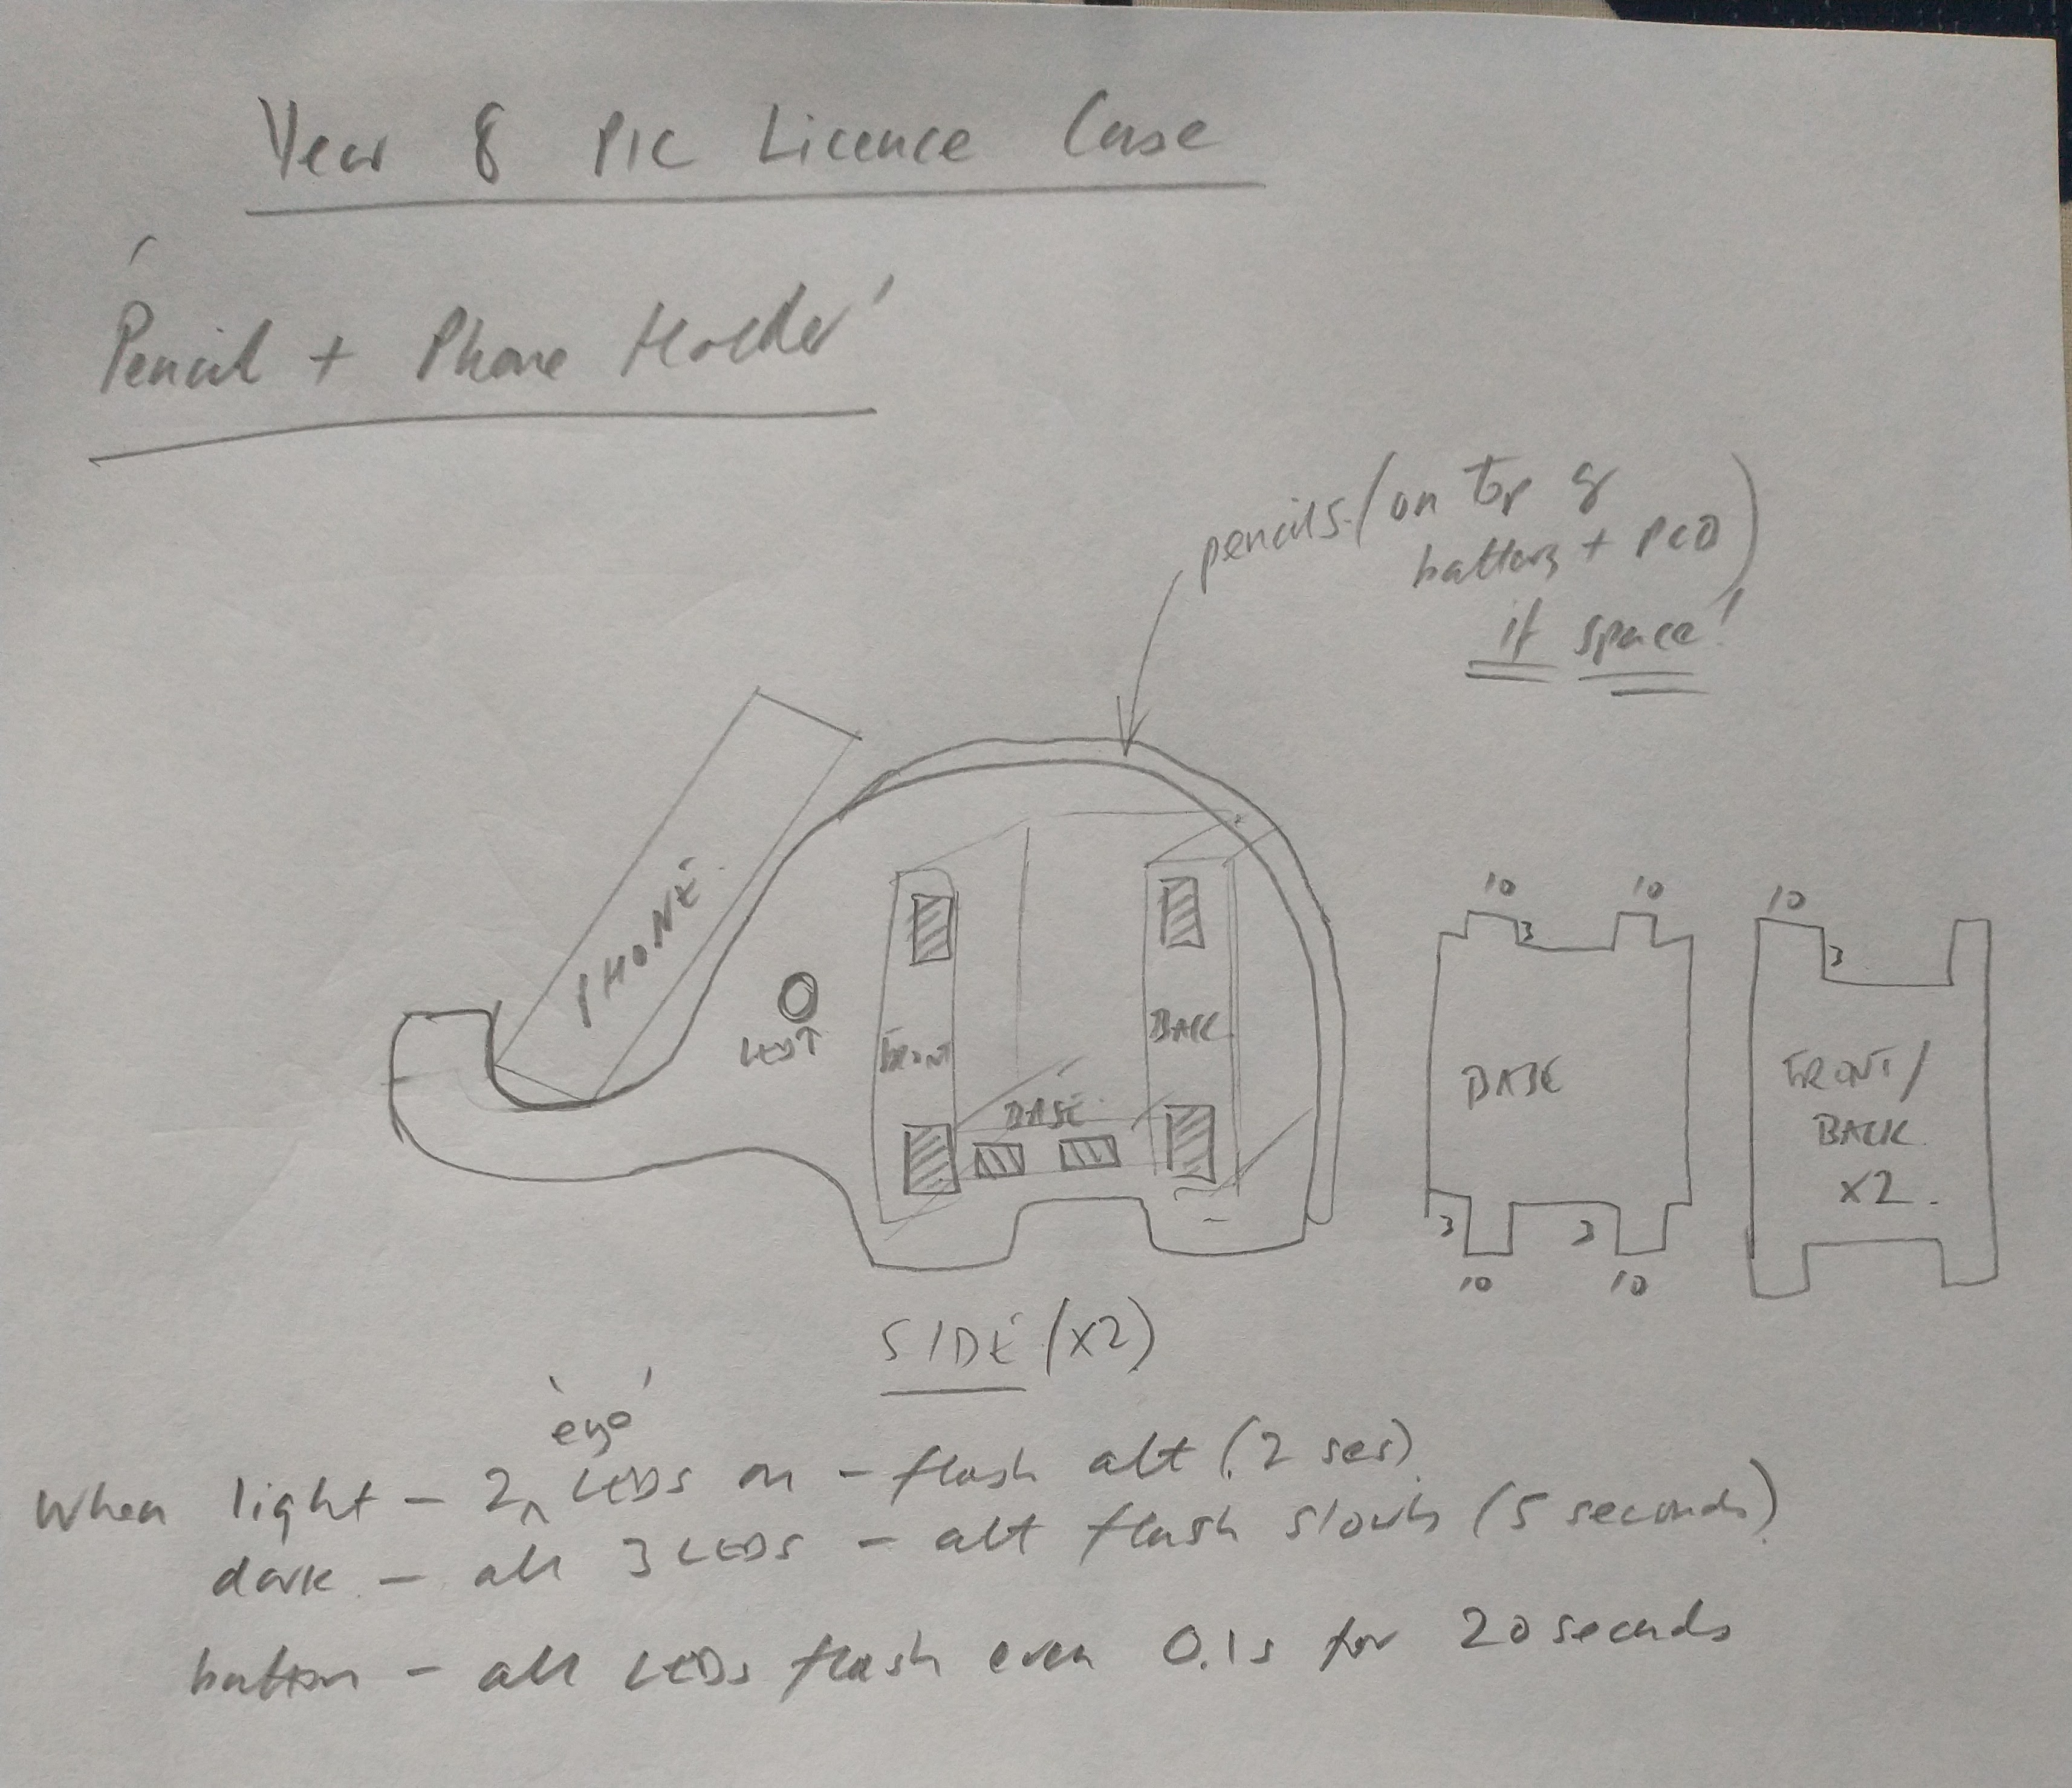 Year 8 PIC Licence Case
'Pencil + Phone Holder'
pencils (on top of
battery + PCB)
if space!
PHONE
LED
FRONT
BACK
BASE
10 10
3
BASE
3 3
10 10
10
3
FRONT/
BACK
x2.
SIDE (x2)
'eye'
When light - 2 LEDs on - flash alt (2 secs)
dark - all 3 LEDs - alt flash slowly (5 seconds)
button - all LEDs flash every 0.1s for 20 seconds